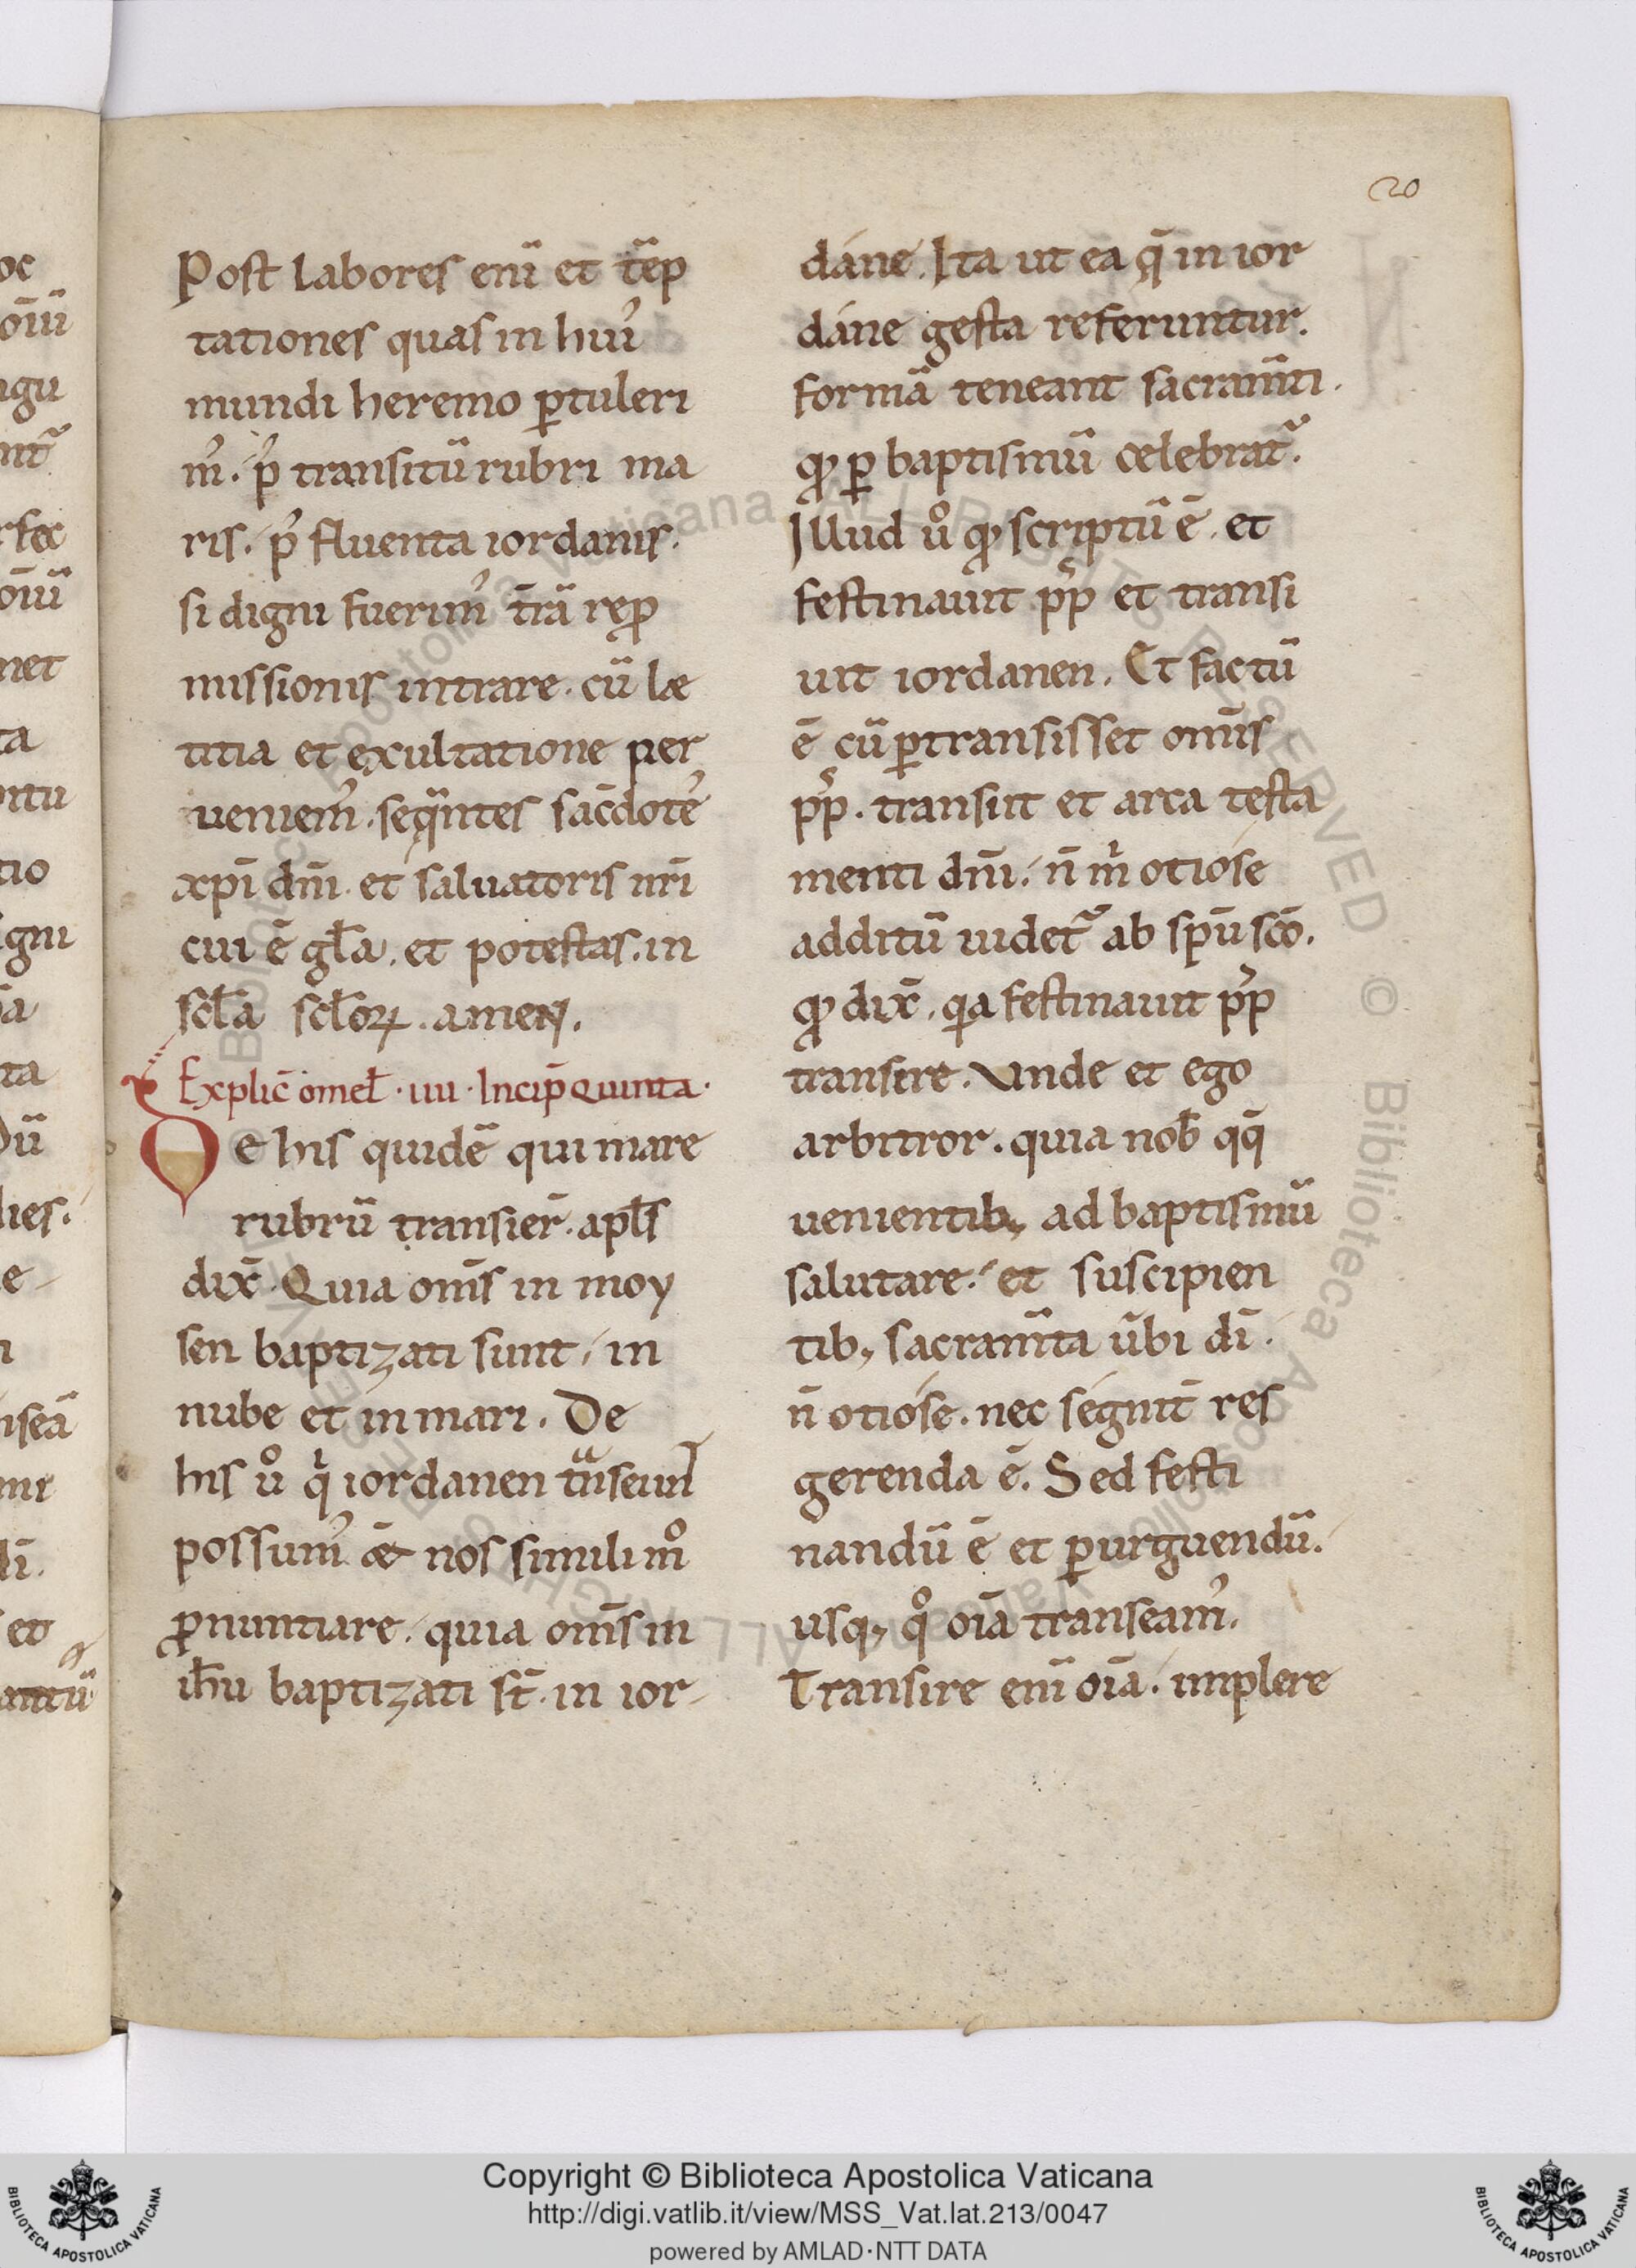 20
Post labores eni̅ et te̅p
tationes quas in hui᾽
mundi heremo ꝑtuleri
m᾽. p᾽ transitu̅ rubri ma
ris. p᾽ fluenta iordanis.
si digni fuerim᾽ tr̅a̅ reꝓ
missionis intrare. cu̅ læ
titia et exultatione per
ueniem᾽. seq̅ntes sac̅dote᾽
xp̅i dn̅i. et saluatoris nr̅i
cui e̅ gl̅a. et potestas. in
scl̅a scl̅oꝝ. amen.
Explic̅ omel̅. iiii. Incip̅ quinta.
De his quide̅ qui mare
rubru̅ transier̅. apl̅s
dix̅. Quia om̅s in moy
sen baptizati sunt. in
nube et in mari. De
his u° qⁱ iordanen tᵃnseun̅
possum᾽ & nos simili m°
ꝓnuntiare. quia om̅s in
ih̅u baptizati st̅. in ior-
dáne. Ita ut ea q̅ in ior
dáne gesta referuntur.
forma̅ teneant sacram̅ti.
ꝙ ꝑ baptismu̅ celebrat᷑.
Illud u° ꝙ scriptu̅ e̅. et
festinauit pp᾽ et transi
uit iordanen. Et factu̅
e̅ cu̅ ꝑtransisset omn̅is
pp᾽. transiit et arca testa
menti dn̅i. n̅ mⁱ otióse
additu̅ uidet᷑ ab sp̅u sc̅o.
ꝙ dix̅. qa festinauit pp᾽
transire. Vnde et ego
arbitror. quia nob̅ qq̅
uenientib; ad baptismu̅
salutare. et suscipien
tib; sacram̅ta u̅bi di̅.
n̅ otióse. nec ségnit̅ res
gerenda e̅. Sed festi
nandu̅ e̅ et ꝑurguendu̅.
usq; q° oi̅a transeam᾽.
Transire eni̅ oi̅a. implere
Copyright © Biblioteca Apostolica Vaticana
http://digi.vatlib.it/view/MSS_Vat.lat.213/0047
powered by AMLAD·NTT DATA
BIBLIOTECA APOSTOLICA VATICANA
BIBLIOTECA APOSTOLICA VATICANA